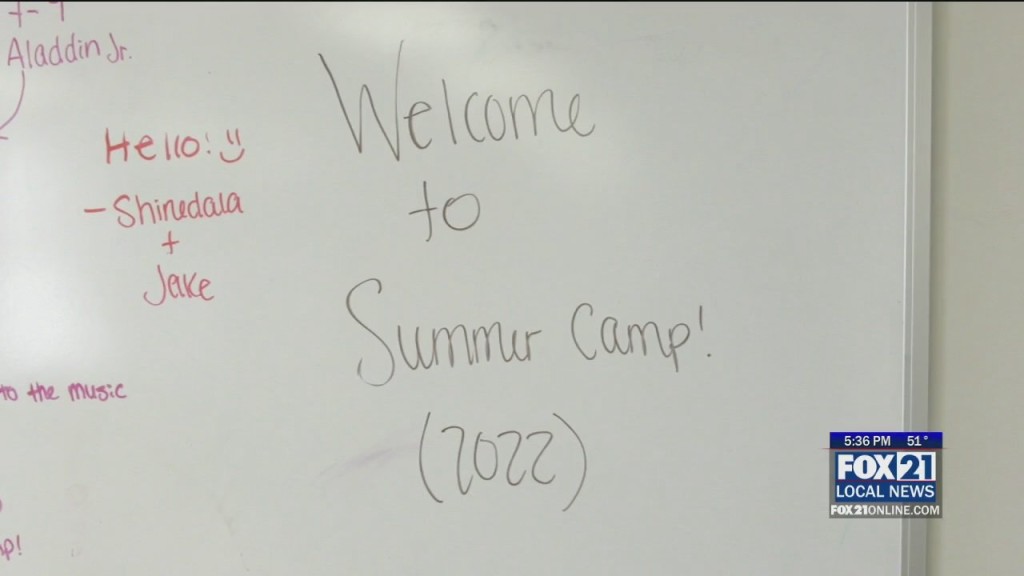 Aladdin Jr.
Hello! :)
- Shinedala
+
Jake
to the music
Welcome
to
Summer Camp!
(2022)
5:36 PM 51°
FOX 21
LOCAL NEWS
FOX21ONLINE.COM